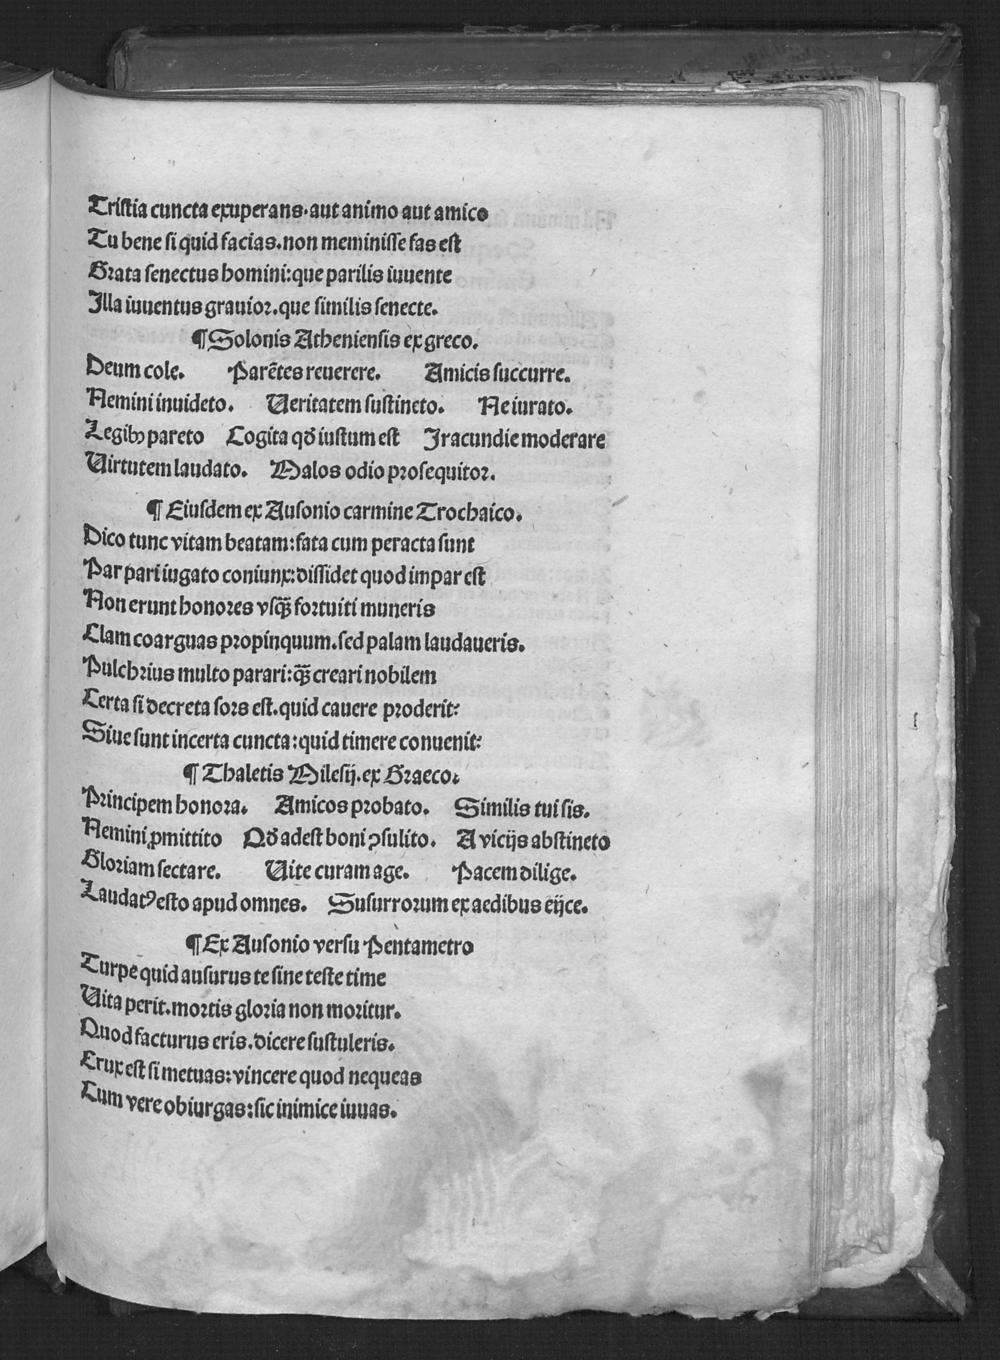 Tristia cuncta exuperans. aut animo aut amico
Tu bene si quid facias. non meminisse fas est
Grata senectus homini: que parilis iuuente
Illa iuuentus grauior. que similis senecte.
¶ Solonis Atheniensis ex greco.
Deum cole. Parẽtes reuerere. Amicis succurre.
Nemini inuideto. Ueritatem sustineto. Ne iurato.
Legibꝫ pareto Cogita qđ iustum est Iracundie moderare
Uirtutem laudato. Malos odio prosequitor.
¶ Eiusdem ex Ausonio carmine Trochaico.
Dico tunc vitam beatam: fata cum peracta sunt
Par pari iugato coniunx: dissidet quod impar est
Non erunt honores vsqȝ̃ fortuiti muneris
Clam coarguas propinquum. sed palam laudaueris.
Pulchrius multo parari: qȝ̃ creari nobilem
Certa si decreta sors est. quid cauere proderit?
Siue sunt incerta cuncta: quid timere conuenit?
¶ Thaletis Milesij. ex Graeco.
Principem honora. Amicos probato. Similis tui sis.
Nemini ꝓmittito Qđ adest boni ꝯsulito. A vicijs abstineto
Gloriam sectare. Uite curam age. Pacem dilige.
Laudatꝰ esto apud omnes. Susurrorum ex aedibus eijce.
¶ Ex Ausonio versu Pentametro
Turpe quid ausurus te sine teste time
Uita perit. mortis gloria non moritur.
Quod facturus eris. dicere sustuleris.
Crux est si metuas: vincere quod nequeas
Cum vere obiurgas: sic inimice iuuas.